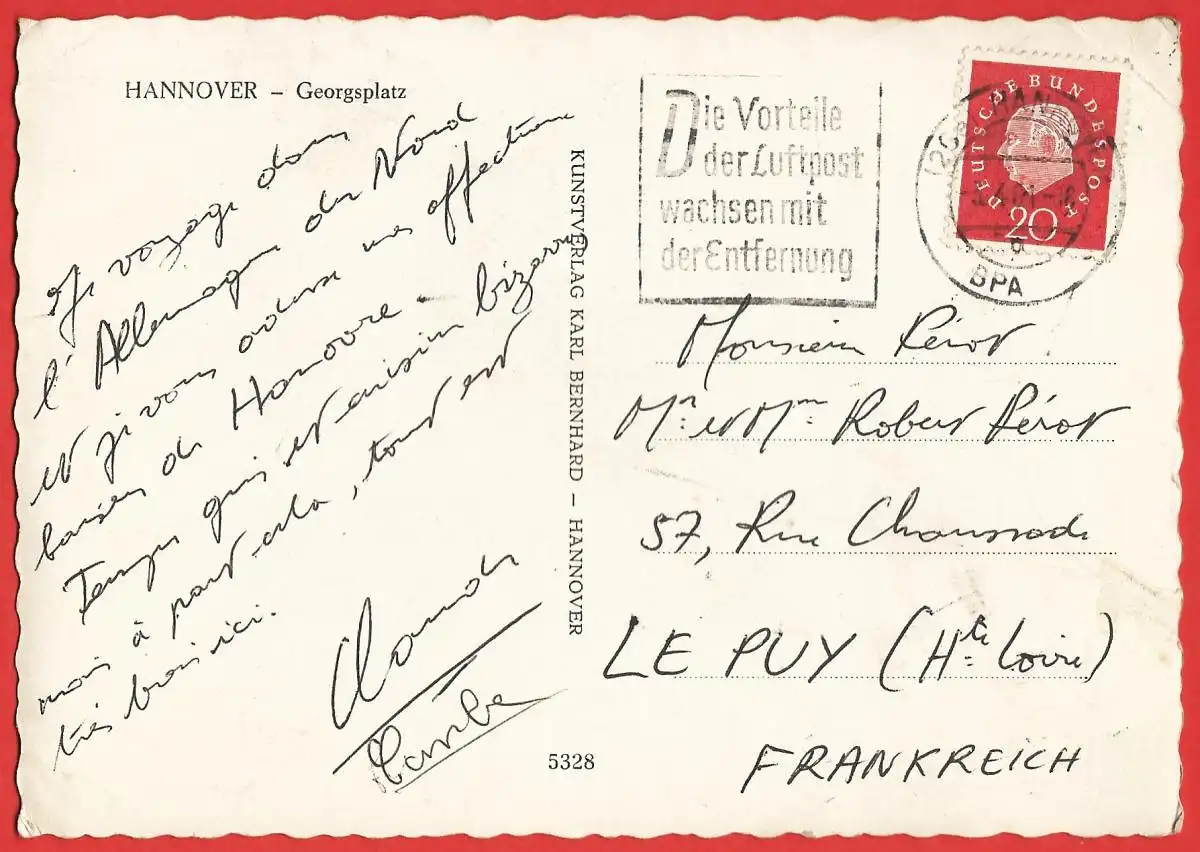 HANNOVER – Georgsplatz
Je voyage dans
l'Allemagne du Nord
et je vous adresse mes affectueux
baisers de Hanovre.
Temps gris et aussi bizarre
mais à part cela, tout est
très bien ici.
Claude
KUNSTVERLAG KARL BERNHARD – HANNOVER
5328
Die Vorteile
der Luftpost
wachsen mit
der Entfernung
DEUTSCHE BUNDESPOST
20
BPA
Monsieur Pérot
Mr et Mme Robert Pérot
57, Rue Chaussade
LE PUY (Hte Loire)
FRANKREICH